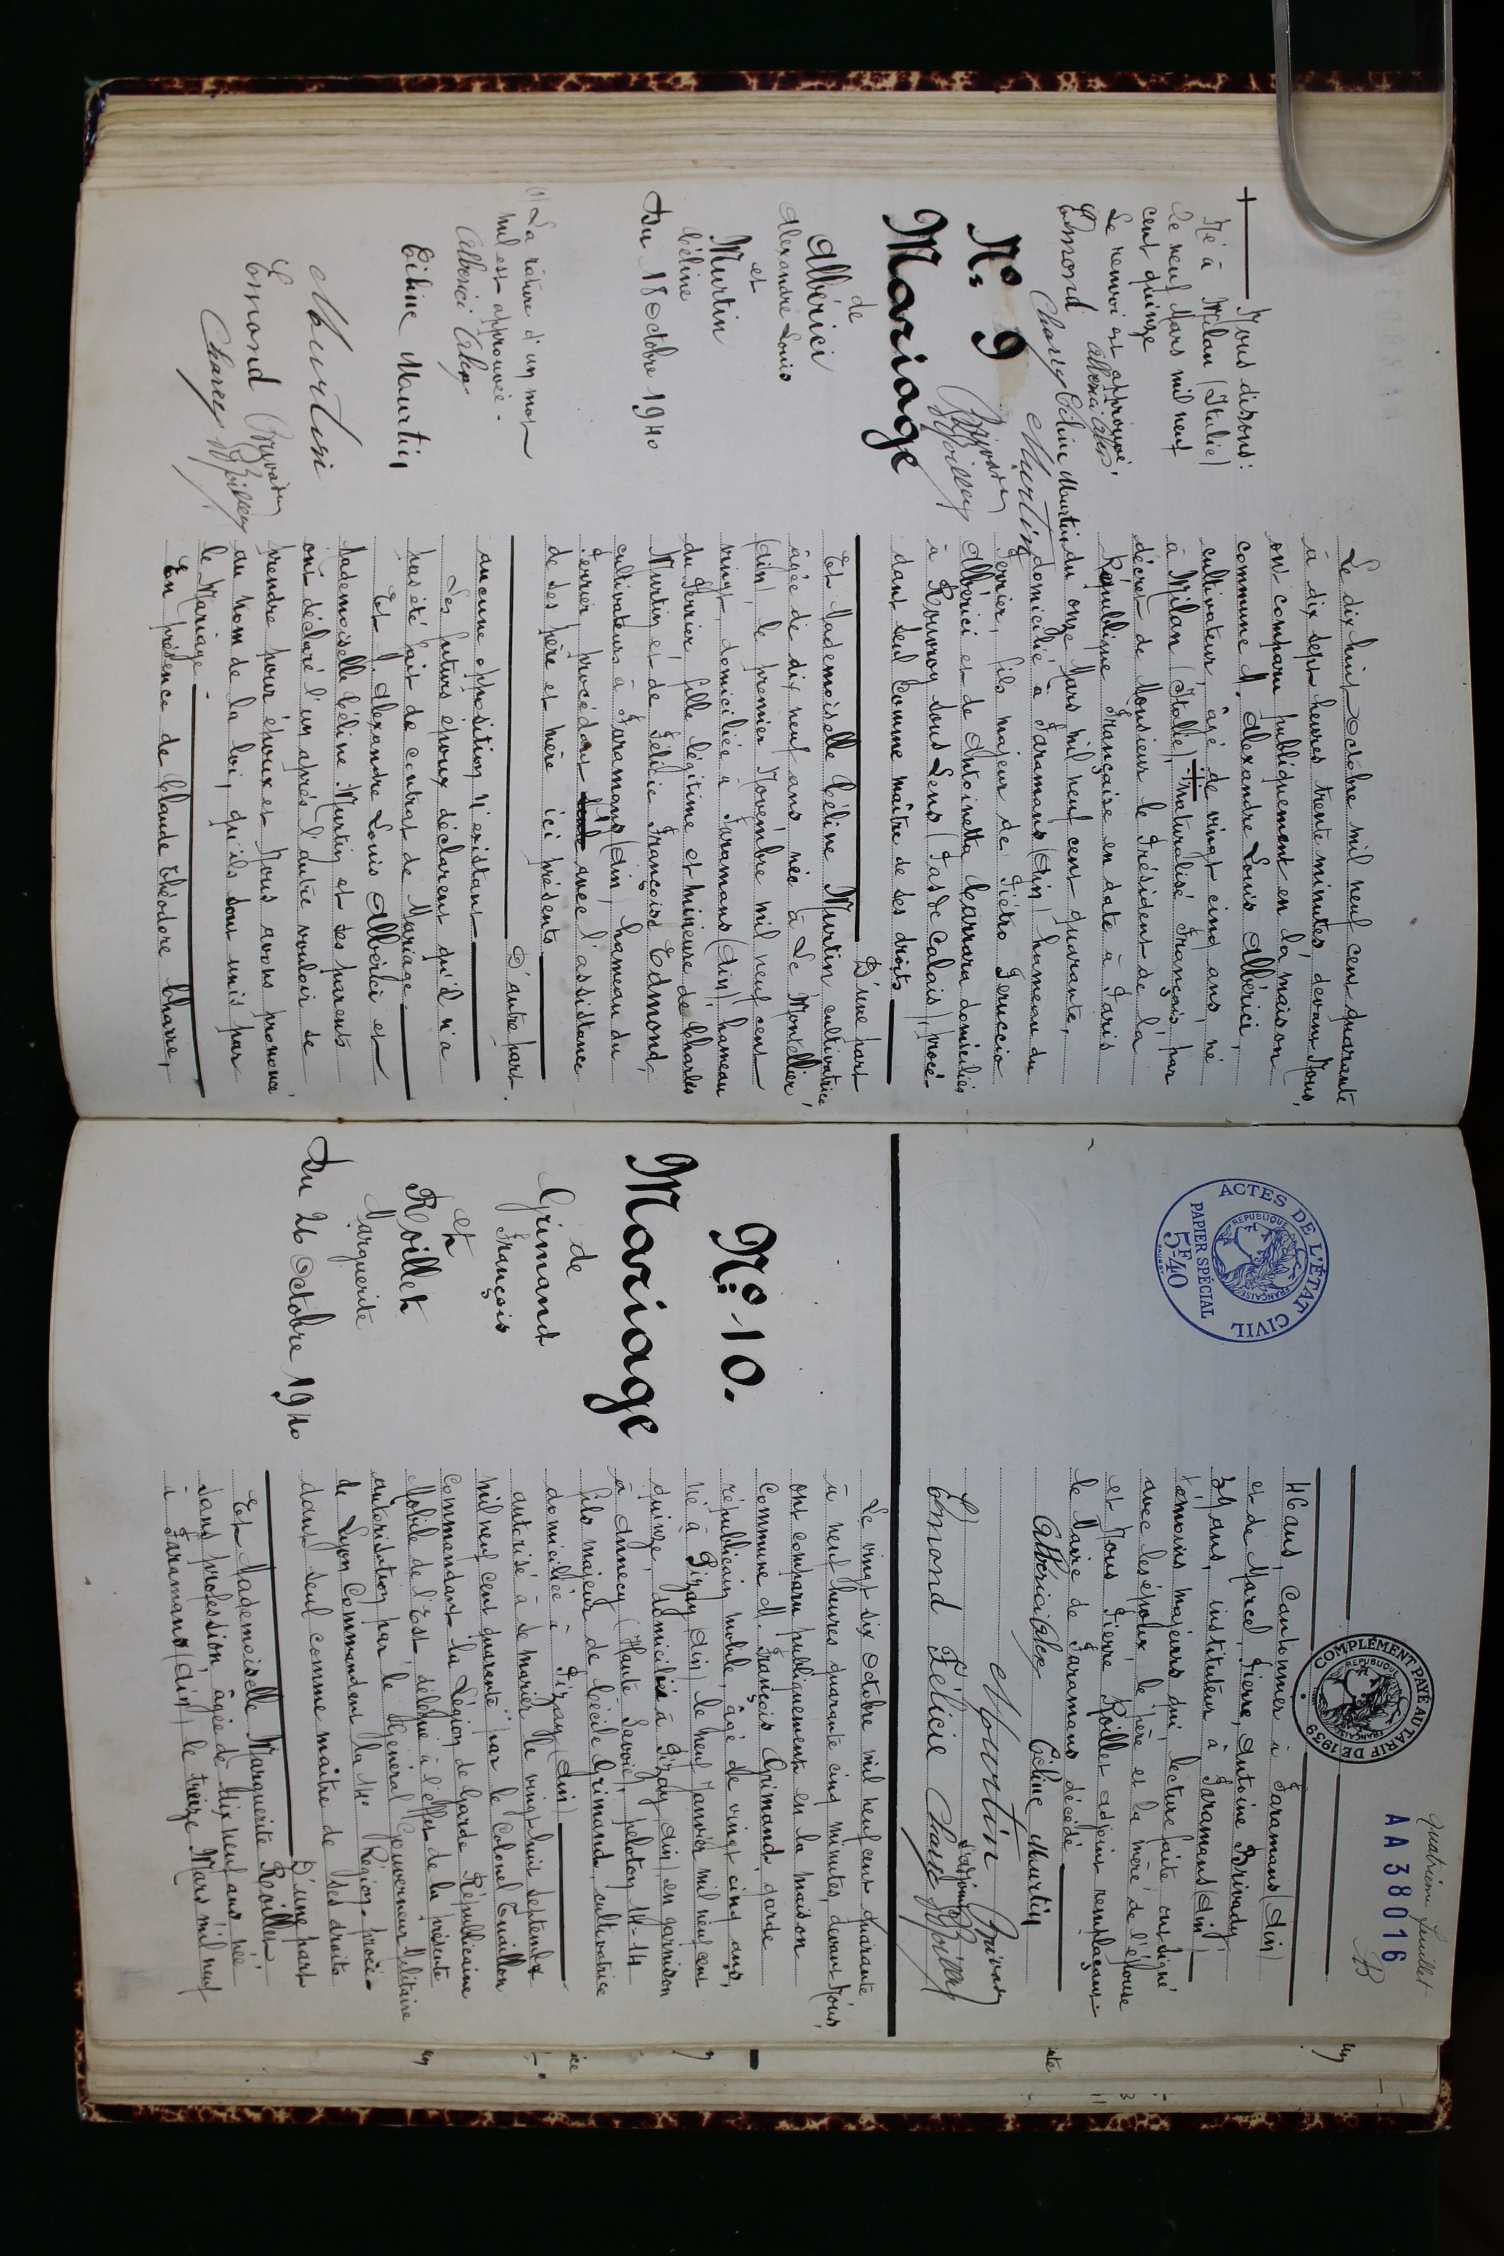 Nous disons:
Né à Milan (Italie)
le neuf Mars mil neuf
cent quinze
Le renvoi est approuvé.
Edmond
Céline Murtin
Murtin
Nº 9
Mariage
de
Albérici
Alexandre Louis
et
Murtin
Céline
Du 18 Octobre 1940
(1) La rature d'un mot
nul est approuvée.
Alberici Alex
Céline Murtin
Murtin
Edmond
Le dix huit Octobre mil neuf cent quarante
à dix sept heures trente minutes, devant Nous,
ont comparu publiquement en la maison
commune M. Alexandre Louis Albérici,
cultivateur, âgé de vingt cinq ans, né
à Milan (Italie), + naturalisé Français, par
décret de Monsieur le Président de la
République Française en date à Paris
du onze Mars mil neuf cent quarante,
domicilié à Faramans (Ain) hameau du
Perrier, fils majeur de Piétro Feruccio
Albérici et de Antoinetta Carrara domiciliés
à Rouvroy sous Lens (Pas de Calais), procé-
dant seul comme maître de ses droits
D'une part
Et Mademoiselle Céline Murtin cultivatrice
âgée de dix neuf ans née à Le Montellier,
(Ain), le premier Novembre mil neuf cent
vingt, domiciliée à Faramans (Ain) hameau
du Perrier, fille légitime et mineure de Charles
Murtin et de Félicie Françoise Edmond,
cultivateurs à Faramans (Ain) hameau du
Perrier, procédant avec l'assistance
de ses père et mère ici présents
D'autre part.
aucune opposition n'existant
Les futurs époux déclarent qu'il n'a
pas été fait de contrat de Mariage
Et M. Alexandre Louis Albérici et
Mademoiselle Céline Murtin et ses parents
ont déclaré l'un après l'autre vouloir se
prendre pour époux et Nous avons prononcé
au nom de la loi, qu'ils sont unis par
le Mariage.
En présence de Claude Théodore Charre,
ACTES DE L'ÉTAT CIVIL
REPUBLIQUE FRANÇAISE
PAPIER SPÉCIAL
5F40
COMPLÉMENT PAYÉ AU TARIF DE 1939
REPUBLIQUE FRANÇAISE
quatrième feuillet
AA38016
46 ans, Cantonnier à Faramans (Ain)
et de Marcel, Pierre, Antoine Brivady,
39 ans, instituteur à Faramans (Ain)
témoins majeurs qui, lecture faite ont signé
avec les époux, le père et la mère de l'épouse
et Nous Pierre Roillet adjoint remplaçant
le Maire de Faramans décédé
Alberici Alex Céline Murtin
Murtin
Edmond Félicie
Nº 10.
Mariage
de
Grimand
François
et
Roillet
Marguerite
Du 26 Octobre 1940
Le vingt six Octobre mil neuf cent quarante
à neuf heures quarante cinq minutes, devant Nous,
ont comparu publiquement en la maison
commune M. François Grimand, garde
républicain mobile, âgé de vingt cinq ans,
né à Pizay (Ain) le neuf Janvier mil neuf cent
quinze, domicilié à Pizay (Ain) en garnison
à Annecy (Haute Savoie), peloton 14-14
fils majeur de Cécile Grimand, cultivatrice
domiciliée à Pizay (Ain)
autorisé à se marier le vingt huit septembre
mil neuf cent quarante par le Colonel Guillon
Commandant la Légion de Garde Républicaine
Mobile de l'Est, délégué à l'effet de la présente
autorisation par le Général Gouverneur Militaire
de Lyon Commandant la 14e Région, procé-
dant seul comme maître de ses droits
D'une part
Et Mademoiselle Marguerite Roillet,
sans profession âgée de dix neuf ans née
à Faramans (Ain) le treize Mars mil neuf